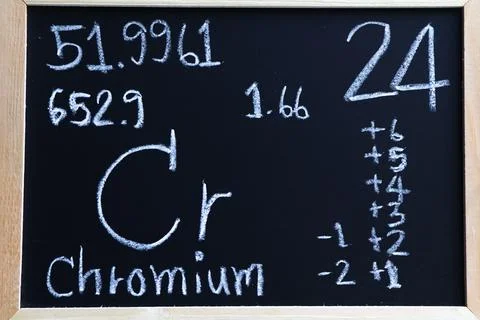 51.9961 24
652.9 1.66
Cr
Chromium
+6
+5
+4
+3
-1 +2
-2 +1